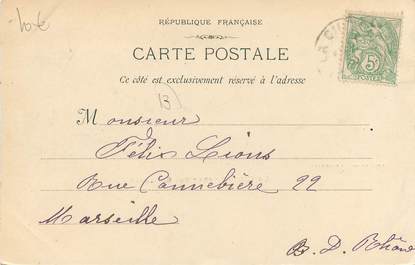 10 €
RÉPUBLIQUE FRANÇAISE
CARTE POSTALE
Ce côté est exclusivement réservé à l'adresse
B
Monsieur
Félix Lions
Rue Cannebière 22
Marseille
B. D. Rhône
5c
POSTES